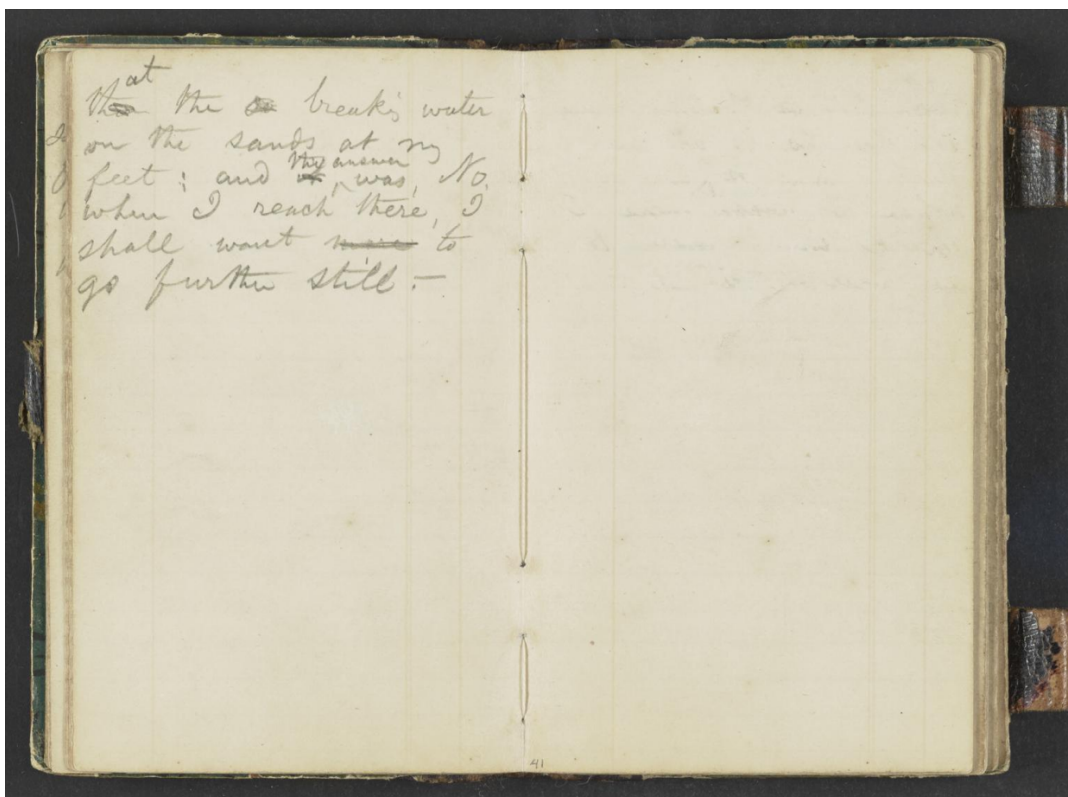 at
the the breakg water
on the sands at my
feet; and it, the answer was, No,
when I reach there, I
shall want more to
go further still.—
41